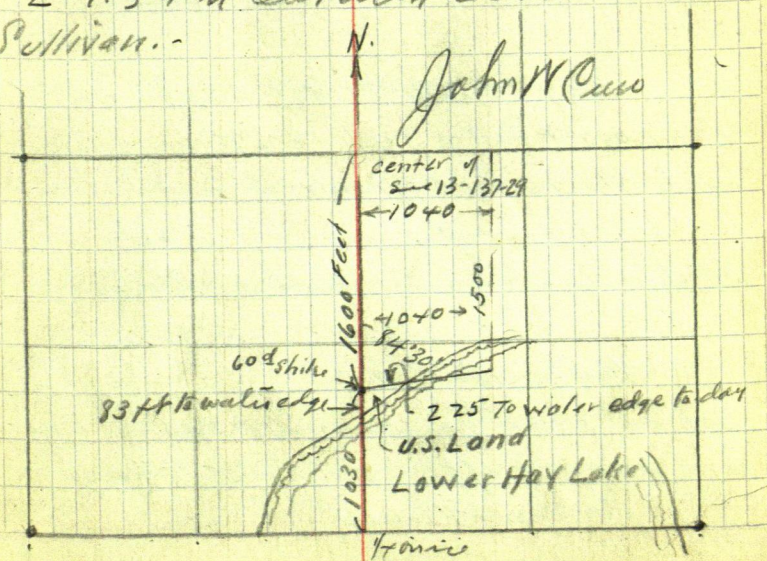 Sullivan.-
N.
John W
center of
Sec 13-137-29
1040
1600 Feet
1500
1040
84°30'
60d spike
83 ft to water edge
225 To water edge to day
U.S. Land
Lower Hay Lake
1030